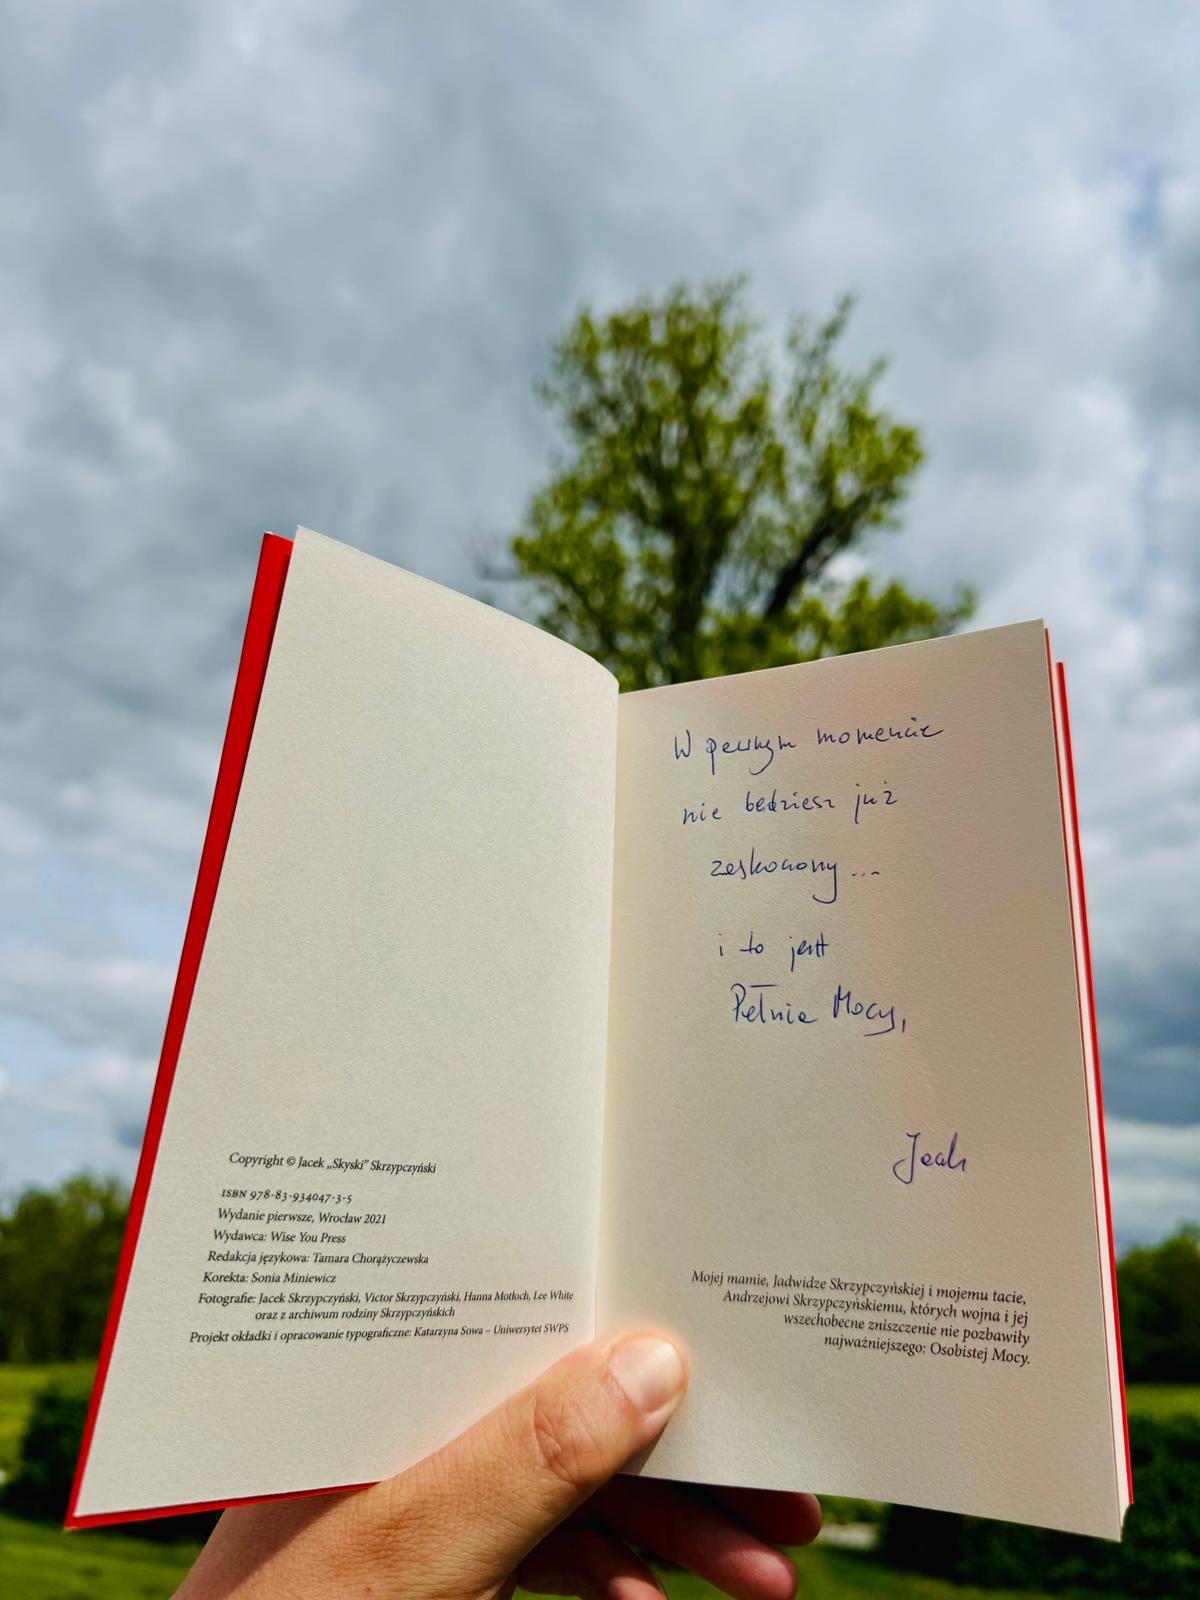 Copyright © Jacek „Skyski” Skrzypczyński
ISBN 978-83-934047-3-5
Wydanie pierwsze, Wrocław 2021
Wydawca: Wise You Press
Redakcja językowa: Tamara Chorążyczewska
Korekta: Sonia Miniewicz
Fotografie: Jacek Skrzypczyński, Victor Skrzypczyński, Hanna Motłoch, Lee White
oraz z archiwum rodziny Skrzypczyńskich
Projekt okładki i opracowanie typograficzne: Katarzyna Sowa – Uniwersytet SWPS
W pewnym momencie
nie będziesz już
zeskoczony ...
i to jest
Pełnia Mocy,
Mojej mamie, Jadwidze Skrzypczyńskiej i mojemu tacie,
Andrzejowi Skrzypczyńskiemu, których wojna i jej
wszechobecne zniszczenie nie pozbawiły
najważniejszego: Osobistej Mocy.